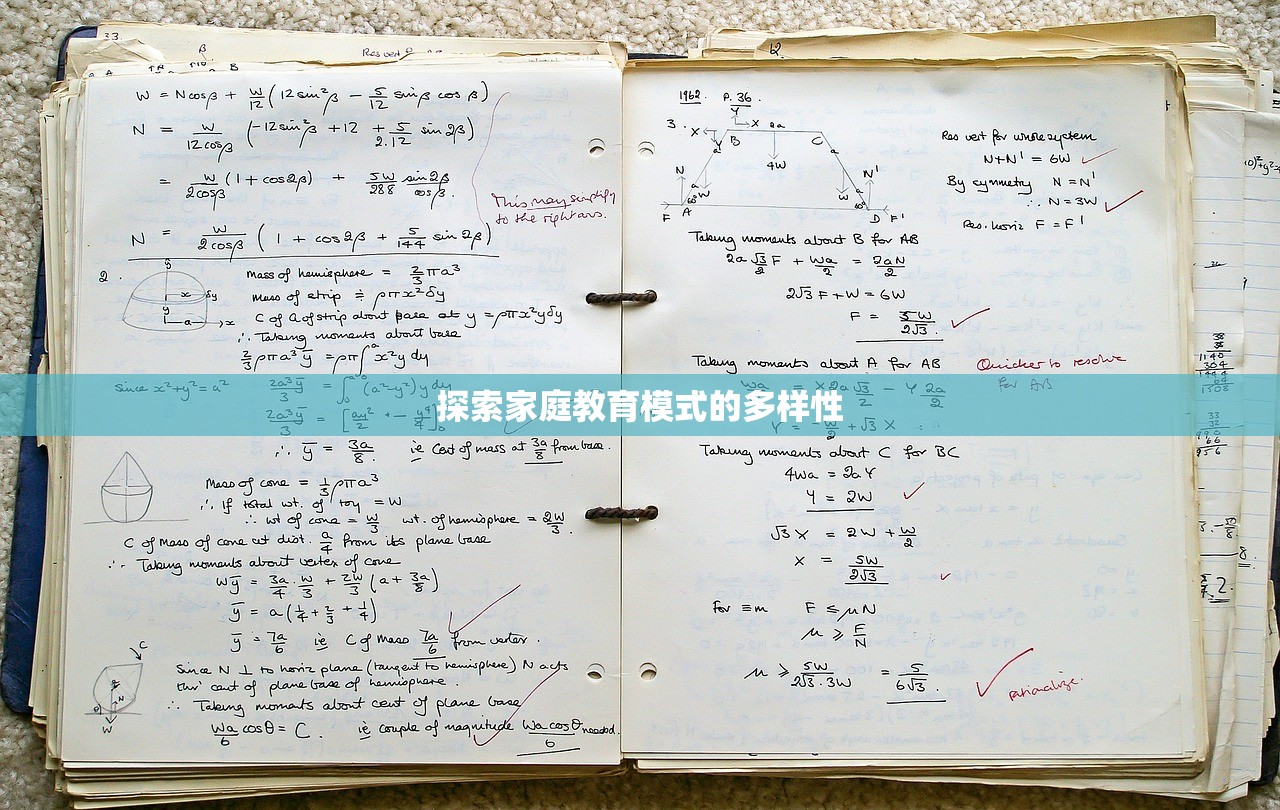 33.
β
Res vert
B
W = N cos β + W/12 (12 sin²β − 5/12 sin β cos β)
N = W/(12 cos β) (−12 sin²β + 12 + 5/(2.12) sin 2β)
= W/(2 cos β) (1 + cos 2β) + 5W/288 sin 2β/cos β.
This may simplify
to the right ans.
N = W/(2 cos β) (1 + cos 2β + 5/144 sin 2β)
2.
y
x δy
y
a → x
Mass of hemisphere = 2/3 πa³
Mass of strip ≑ ρπx²δy
C of G of strip about base at y = ρπx²yδy
∴ Taking moments about base
2/3 ρπa³ȳ = ρπ∫₀ᵃ x²y dy
since x²+y²=a² 2a³ȳ/3 = ∫₀ᵃ (a²−y²)y dy
探索家庭教育模式的多样性
∴ ȳ = 3a/8. ie Cent of mass at 3a/8 from base.
Mass of cone = 1/3 ρπa³
∴ If total wt. of toy = W
∴ wt of cone = W/3 wt. of hemisphere = 2W/3.
C of Mass of cone at dist. a/4 from its plane base
∴ Taking moments about vertex of cone
Wȳ = 3a/4 · W/3 + 2W/3 (a + 3a/8)
ȳ = a(1/4 + 2/3 + 1/4)
ȳ = 7a/6 ie C of Mass 7a/6 from vertex.
C
N
W
Since N ⊥ to horiz plane (tangent to hemisphere) N acts
thro' cent of plane base of hemisphere.
∴ Taking moments about cent of plane base
Wa/6 cos θ = C. ie couple of magnitude Wa cos θ/6 needed.
1962. P. 36.
3.
X Y X 2a
B C
4W
N W W N'
60° 60°
F A D F'
Res vert for whole system
N+N' = 6W
By symmetry N = N'
∴ N = 3W
Res. horiz F = F'
Taking moments about B for AB
2a √3/2 F + Wa/2 = 2aN/2
2√3 F + W = 6W
F = 5W/2√3.
Taking moments about A for AB
Quicker to resolve
for AB
Taking moments about C for BC
4Wa = 2aY
Y = 2W
√3 X = 2W + W/2
X = 5W/2√3
For ≡m F ≤ μN
μ ≥ F/N
μ ≥ 5W/(2√3·3W) = 5/6√3.
rationalize.